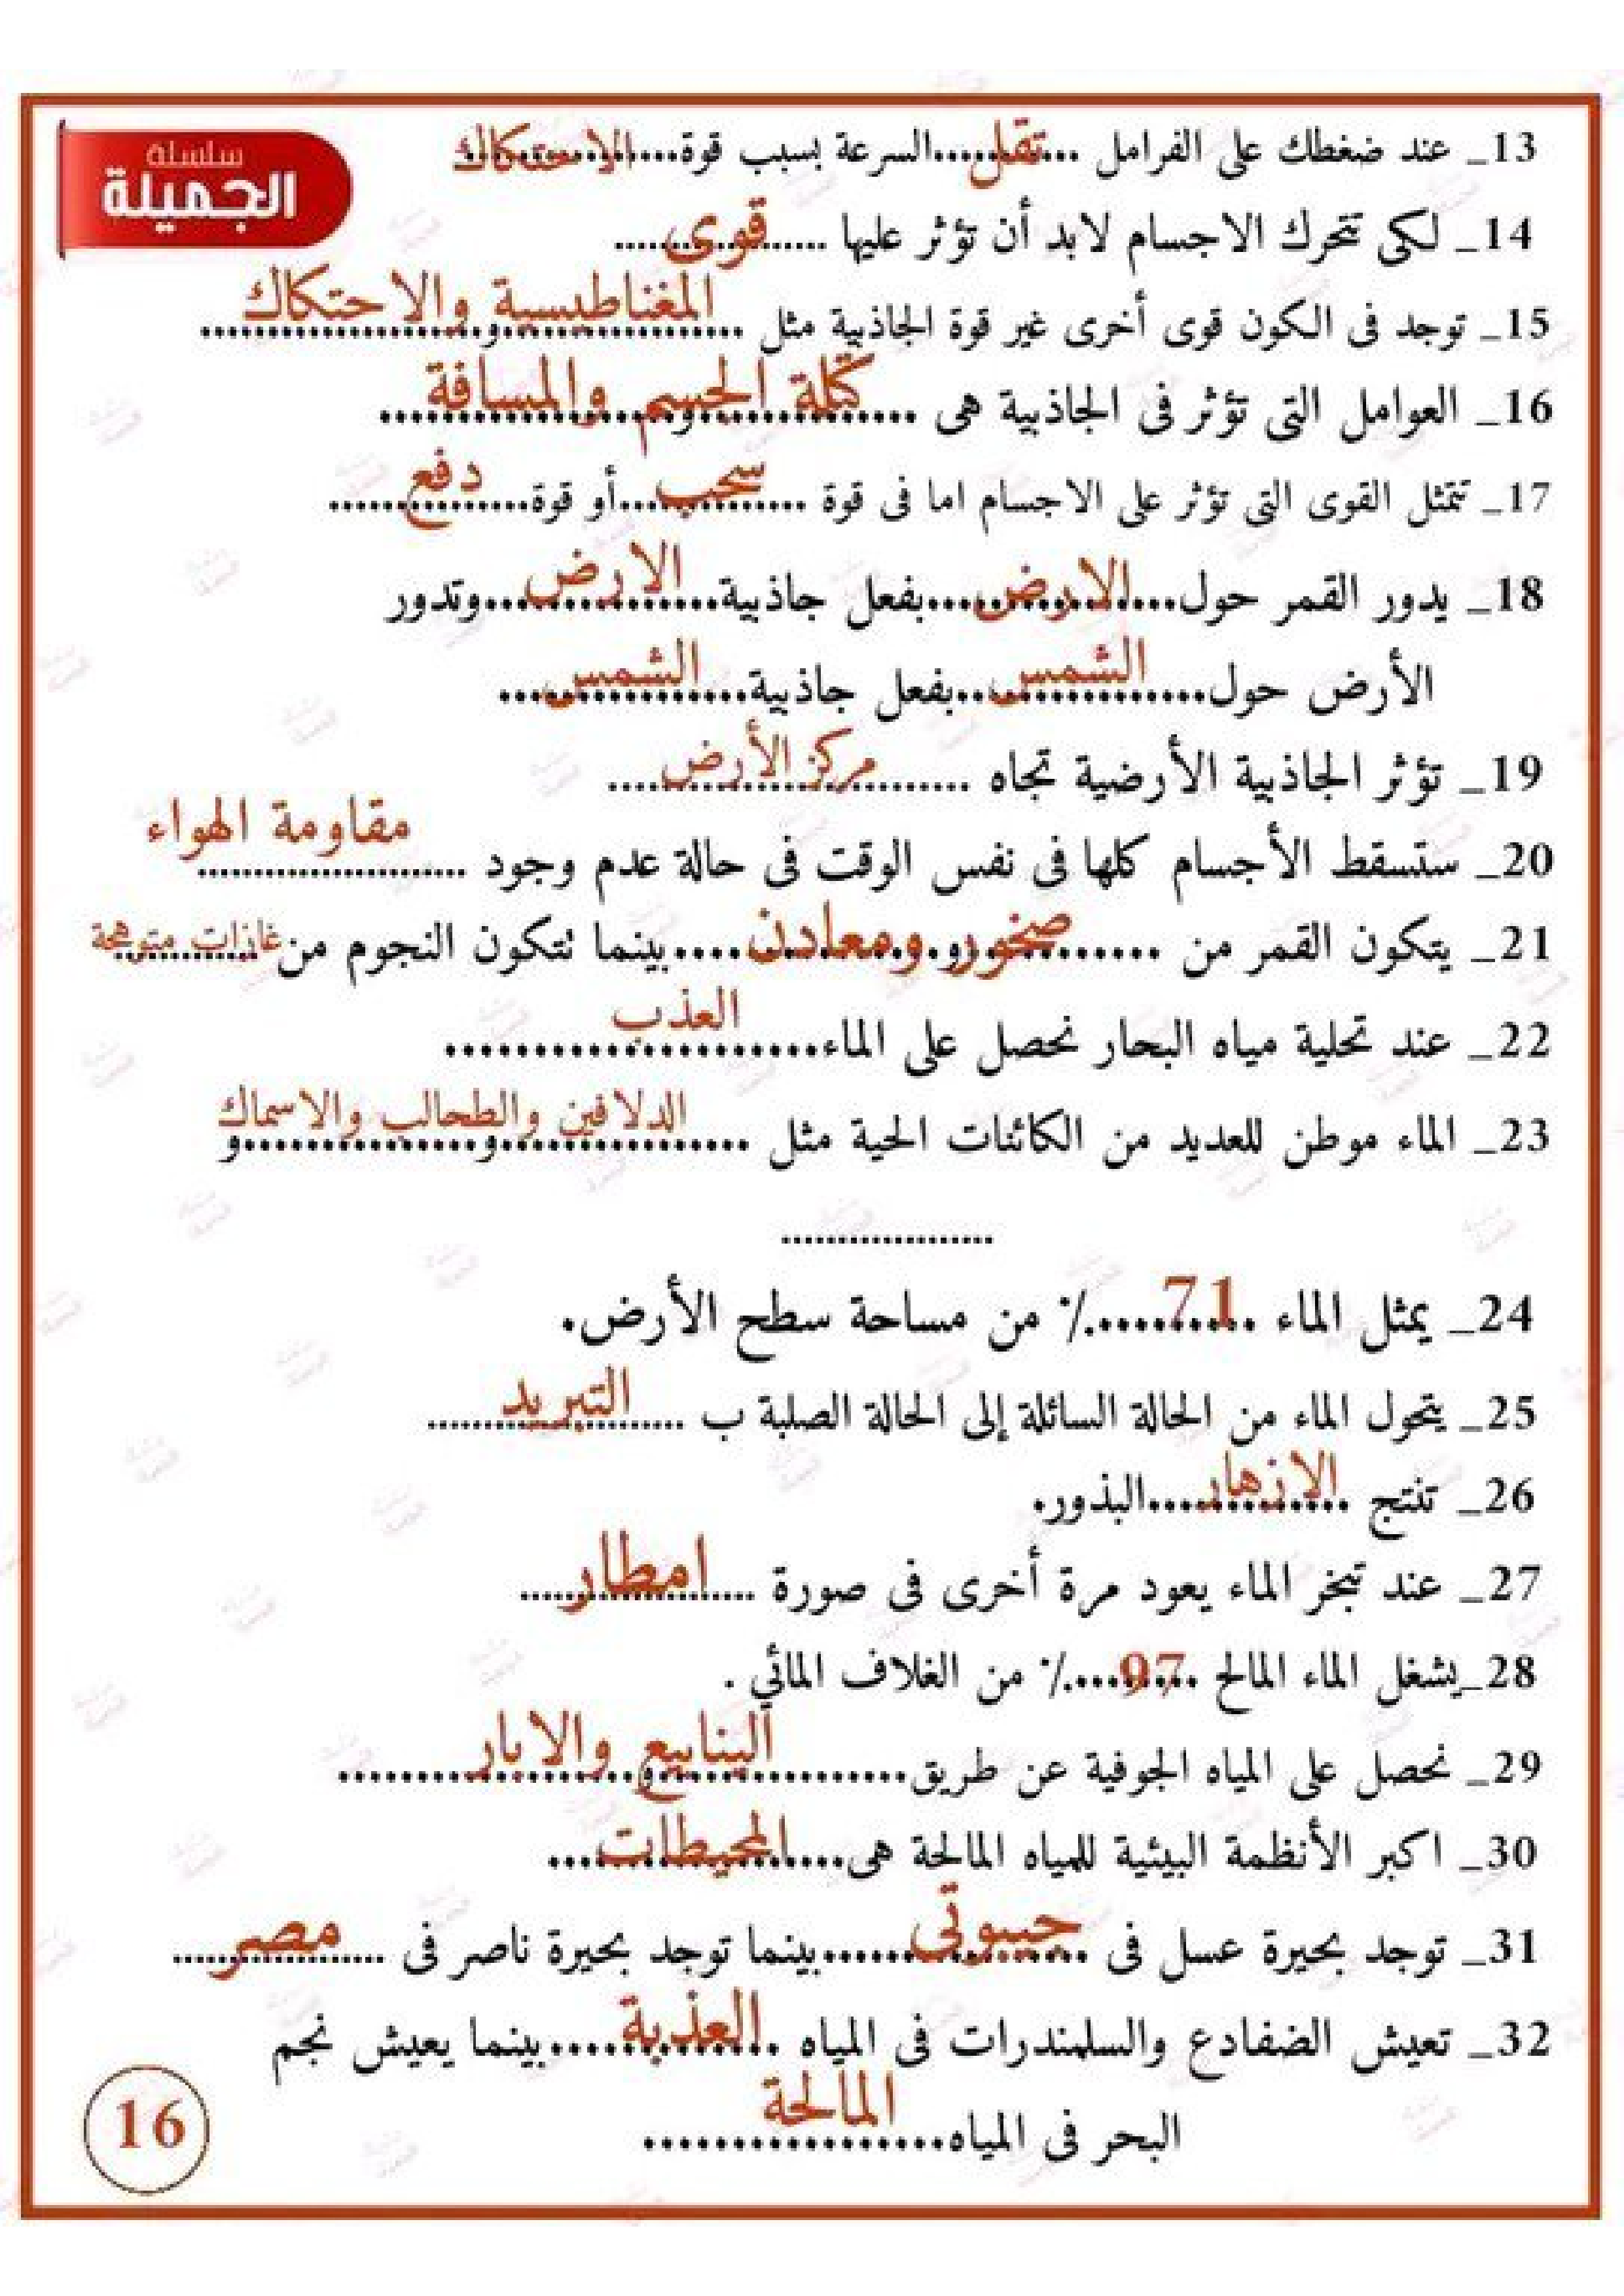 سلسلة
الجميلة
13_ عند ضغطك على الفرامل ....تقل....السرعة بسبب قوة....الاحتكاك
14_ لكى تتحرك الاجسام لابد أن تؤثر عليها ....قوى....
15_ توجد فى الكون قوى أخرى غير قوة الجاذبية مثل المغناطيسية والاحتكاك
16_ العوامل التى تؤثر فى الجاذبية هى كتلة الجسم والمسافة
17_ تتمثل القوى التى تؤثر على الاجسام اما فى قوة ....سحب....أو قوة....دفع....
18_ يدور القمر حول....الارض....بفعل جاذبية....الارض....وتدور
الأرض حول....الشمس....بفعل جاذبية....الشمس....
19_ تؤثر الجاذبية الأرضية تجاه ....مركز الأرض....
20_ ستسقط الأجسام كلها فى نفس الوقت فى حالة عدم وجود مقاومة الهواء
21_ يتكون القمر من ....صخور ومعادن....بينما تتكون النجوم من غازات متوهجة
22_ عند تحلية مياه البحار نحصل على الماء....العذب....
23_ الماء موطن للعديد من الكائنات الحية مثل الدلافين والطحالب والاسماك
....و....و
....................
24_ يمثل الماء ....71....% من مساحة سطح الأرض.
25_ يتحول الماء من الحالة السائلة إلى الحالة الصلبة ب ....التبريد....
26_ تنتج ....الازهار....البذور.
27_ عند تبخر الماء يعود مرة أخرى فى صورة ....امطار....
28_يشغل الماء المالح ....97....% من الغلاف المائي .
29_ نحصل على المياه الجوفية عن طريق....الينابيع والابار....
30_ اكبر الأنظمة البيئية للمياه المالحة هى....المحيطات....
31_ توجد بحيرة عسل فى ....جيبوتي....بينما توجد بحيرة ناصر فى ....مصر....
32_ تعيش الضفادع والسلمندرات فى المياه ....العذبة....بينما يعيش نجم
البحر فى المياه....المالحة....
16